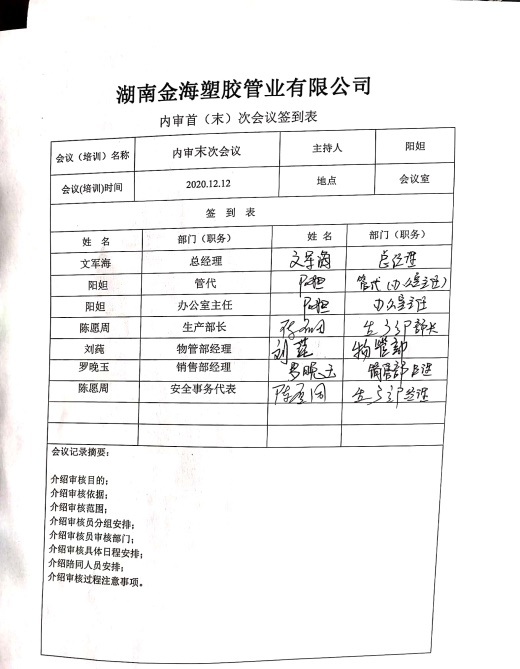 湖南金海塑胶管业有限公司
内审首（末）次会议签到表
会议（培训）名称 内审末次会议 主持人 阳妲
会议(培训)时间 2020.12.12 地点 会议室
签 到 表
姓 名 部门（职务） 姓 名 部门（职务）
文军海 总经理 文军海 总经理
阳妲 管代 阳妲 管代（办公室主任）
阳妲 办公室主任 阳妲 办公室主任
陈愿周 生产部长 生产部长
刘莼 物管部经理 刘莼 物管部
罗晚玉 销售部经理 罗晚玉 销售部经理
陈愿周 安全事务代表 陈愿周 生产部经理
会议记录摘要：
介绍审核目的；
介绍审核依据；
介绍审核范围；
介绍审核员分组安排；
介绍审核员审核部门；
介绍审核具体日程安排；
介绍陪同人员安排；
介绍审核过程注意事项。